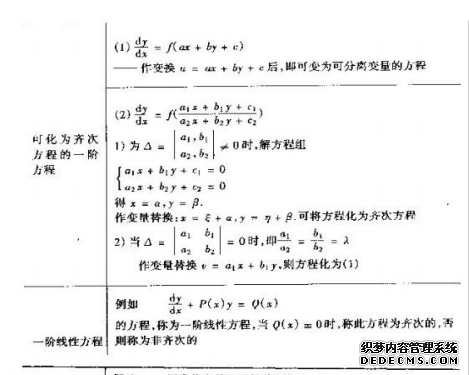 (1) dy/dx = f(ax + by + c)
—— 作变换 u = ax + by + c 后,即可变为可分离变量的方程
(2) dy/dx = f((a₁x + b₁y + c₁)/(a₂x + b₂y + c₂))
可化为齐次
方程的一阶
方程
1) 为 Δ = |a₁, b₁; a₂, b₂| ≠ 0 时,解方程组
{ a₁x + b₁y + c₁ = 0
a₂x + b₂y + c₂ = 0
得 x = α, y = β.
作变量替换:x = ξ + α, y = η + β.可将方程化为齐次方程
2) 当 Δ = |a₁ b₁; a₂ b₂| = 0 时,即 a₁/a₂ = b₁/b₂ = λ
作变量替换 v = a₁x + b₁y,则方程化为(1)
一阶线性方程
例如 dy/dx + P(x)y = Q(x)
的方程,称为一阶线性方程,当 Q(x) ≡ 0时,称此方程为齐次的,否
则称为非齐次的
织梦内容管理系统
DEDECMS.COM